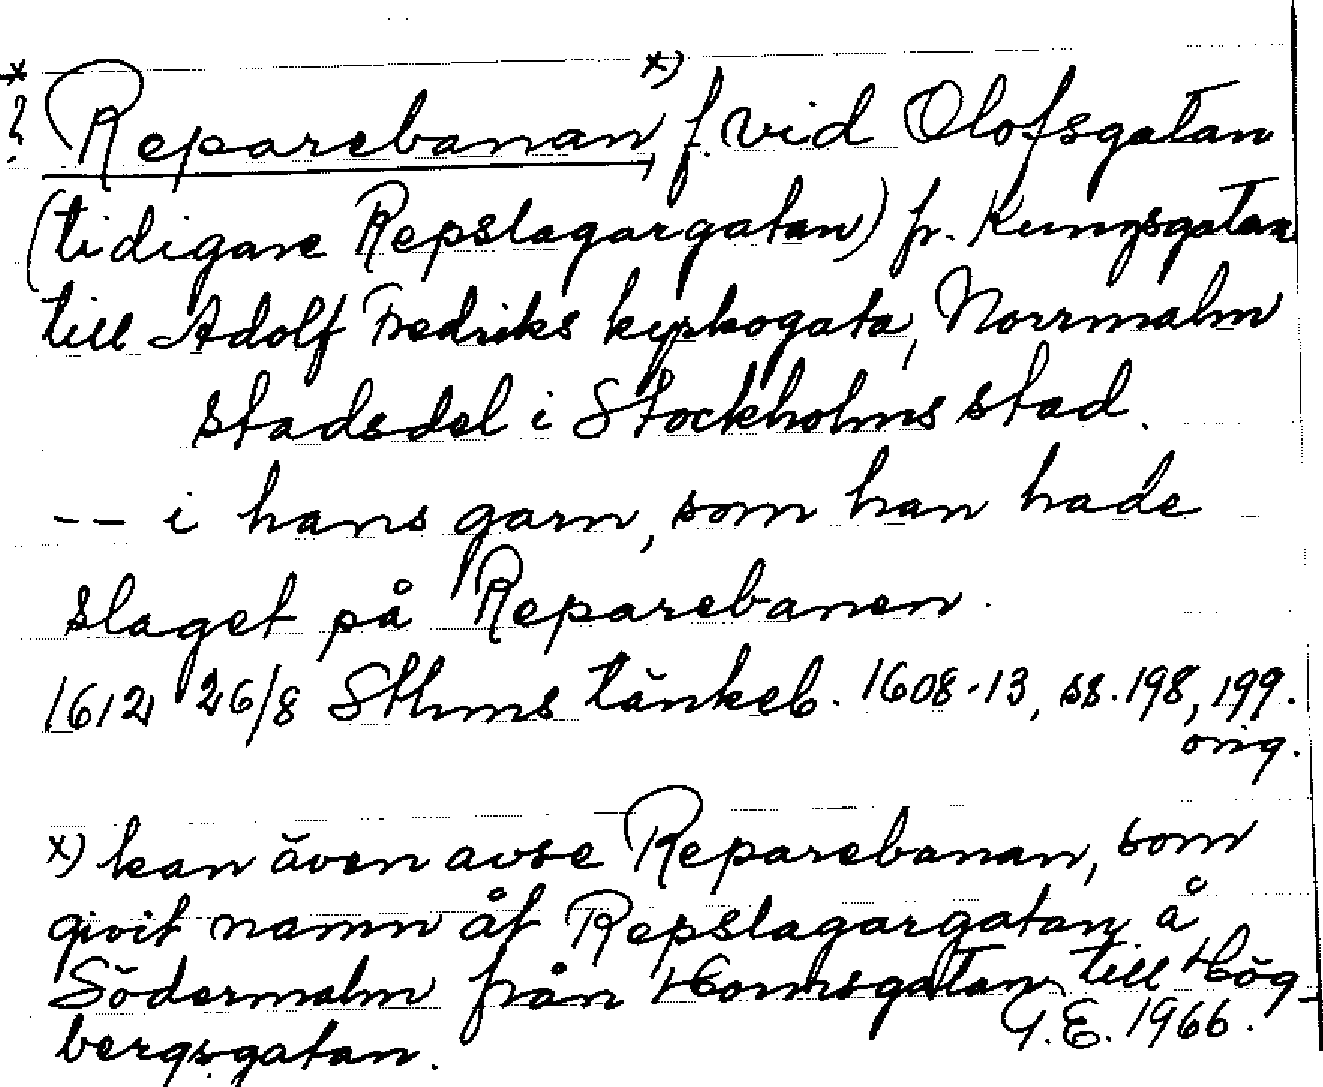 *
? Reparebanan, x) f. vid Olofsgatan
(tidigare Repslagargatan) fr. Kungsgatan
till Adolf Fredriks kyrkogata, Norrmalm
stadsdel i Stockholms stad.
-- i hans garn, som han hade
slaget på Reparebanen.
1612 26/8 Sthms tänkeb. 1608-13, ss. 198, 199.
orig.
x) kan även avse Reparebanan, som
givit namn åt Repslagargatan å
Södermalm från Hornsgatan till Hög-
bergsgatan. G.E. 1966.